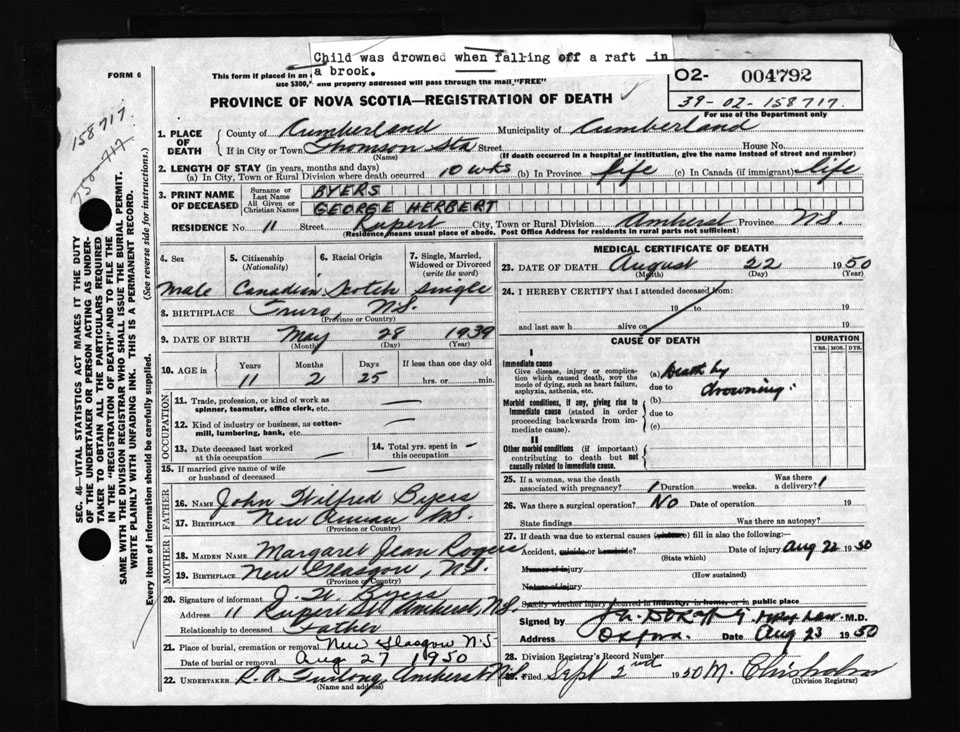 Child was drowned when falling off a raft in
a brook.
FORM 6
This form if placed in an
use $300, and property addressed will pass through the mail, "FREE"
O2- 004792
39-02-158717.
For use of the Department only
PROVINCE OF NOVA SCOTIA—REGISTRATION OF DEATH
158717.
1. PLACE OF DEATH County of Cumberland Municipality of Cumberland
If in City or Town Thomson Sta Street House No.
(Name) (If death occurred in a hospital or institution, give the name instead of street and number)
2. LENGTH OF STAY (in years, months and days)
(a) In City, Town or Rural Division where death occurred 10 wks (b) In Province life (c) In Canada (if immigrant) life
3. PRINT NAME OF DECEASED Surname or Last Name BYERS
All Given or Christian Names GEORGE HERBERT
RESIDENCE No. 11 Street Rupert City, Town or Rural Division Amherst Province N.S.
(Residence means usual place of abode. Post Office Address for residents in rural parts not sufficient)
4. Sex 5. Citizenship (Nationality) 6. Racial Origin 7. Single, Married, Widowed or Divorced (write the word)
Male Canadian Scotch Single
8. BIRTHPLACE Truro, N.S.
(Province or Country)
9. DATE OF BIRTH May 28 1939
(Month) (Day) (Year)
10. AGE in Years Months Days If less than one day old
11 2 25 hrs. or min.
OCCUPATION
11. Trade, profession, or kind of work as spinner, teamster, office clerk, etc. —
12. Kind of industry or business, as cotton-mill, lumbering, bank, etc. —
13. Date deceased last worked at this occupation — 14. Total yrs. spent in this occupation —
15. If married give name of wife or husband of deceased —
FATHER
16. NAME John Wilfred Byers
17. BIRTHPLACE New Annan N.S.
(Province or Country)
MOTHER
18. MAIDEN NAME Margaret Jean Rogers
19. BIRTHPLACE New Glasgow, N.S.
(Province or Country)
20. Signature of informant J. W. Byers
Address 11 Rupert St. Amherst, N.S.
Relationship to deceased Father
21. Place of burial, cremation or removal New Glasgow N.S
Date of burial or removal Aug 27 1950
22. UNDERTAKER R. A. Furlong, Amherst N.S.
(Name and address)
MEDICAL CERTIFICATE OF DEATH
23. DATE OF DEATH August 22 1950
(Month) (Day) (Year)
24. I HEREBY CERTIFY that I attended deceased from:
19 to 19
and last saw h alive on 19
CAUSE OF DEATH DURATION
YRS. MOS. DYS.
I
Immediate cause
Give disease, injury or complication which caused death, NOT the mode of dying, such as heart failure, asphyxia, asthenia, etc. (a) Death by
due to drowning.
Morbid conditions, if any, giving rise to immediate cause (stated in order proceeding backwards from immediate cause). (b)
due to
(c)
II
Other morbid conditions (if important) contributing to death but not causally related to immediate cause.
25. If a woman, was the death associated with pregnancy? Duration weeks. Was there a delivery?
26. Was there a surgical operation? No Date of operation 19
State findings Was there an autopsy?
27. If death was due to external causes (violence) fill in also the following:
Accident, suicide or homicide? Date of injury Aug 22 1950
(State which)
Manner of injury
(How sustained)
Nature of injury
Specify whether injury occurred in industry, in home, or in public place
Signed by M.D.
Address Oxford. Date Aug 23 1950
28. Division Registrar's Record Number
29. Filed Sept 2nd 1950 M. Chisholm
(Division Registrar)
SEC. 46—VITAL STATISTICS ACT MAKES IT THE DUTY
OF THE UNDERTAKER OR PERSON ACTING AS UNDER-
TAKER TO OBTAIN ALL THE PARTICULARS REQUIRED
IN THE "REGISTRATION OF DEATH" AND TO FILE THE
SAME WITH THE DIVISION REGISTRAR WHO SHALL ISSUE THE BURIAL PERMIT.
WRITE PLAINLY WITH UNFADING INK. THIS IS A PERMANENT RECORD.
Every item of information should be carefully supplied. (See reverse side for instructions.)